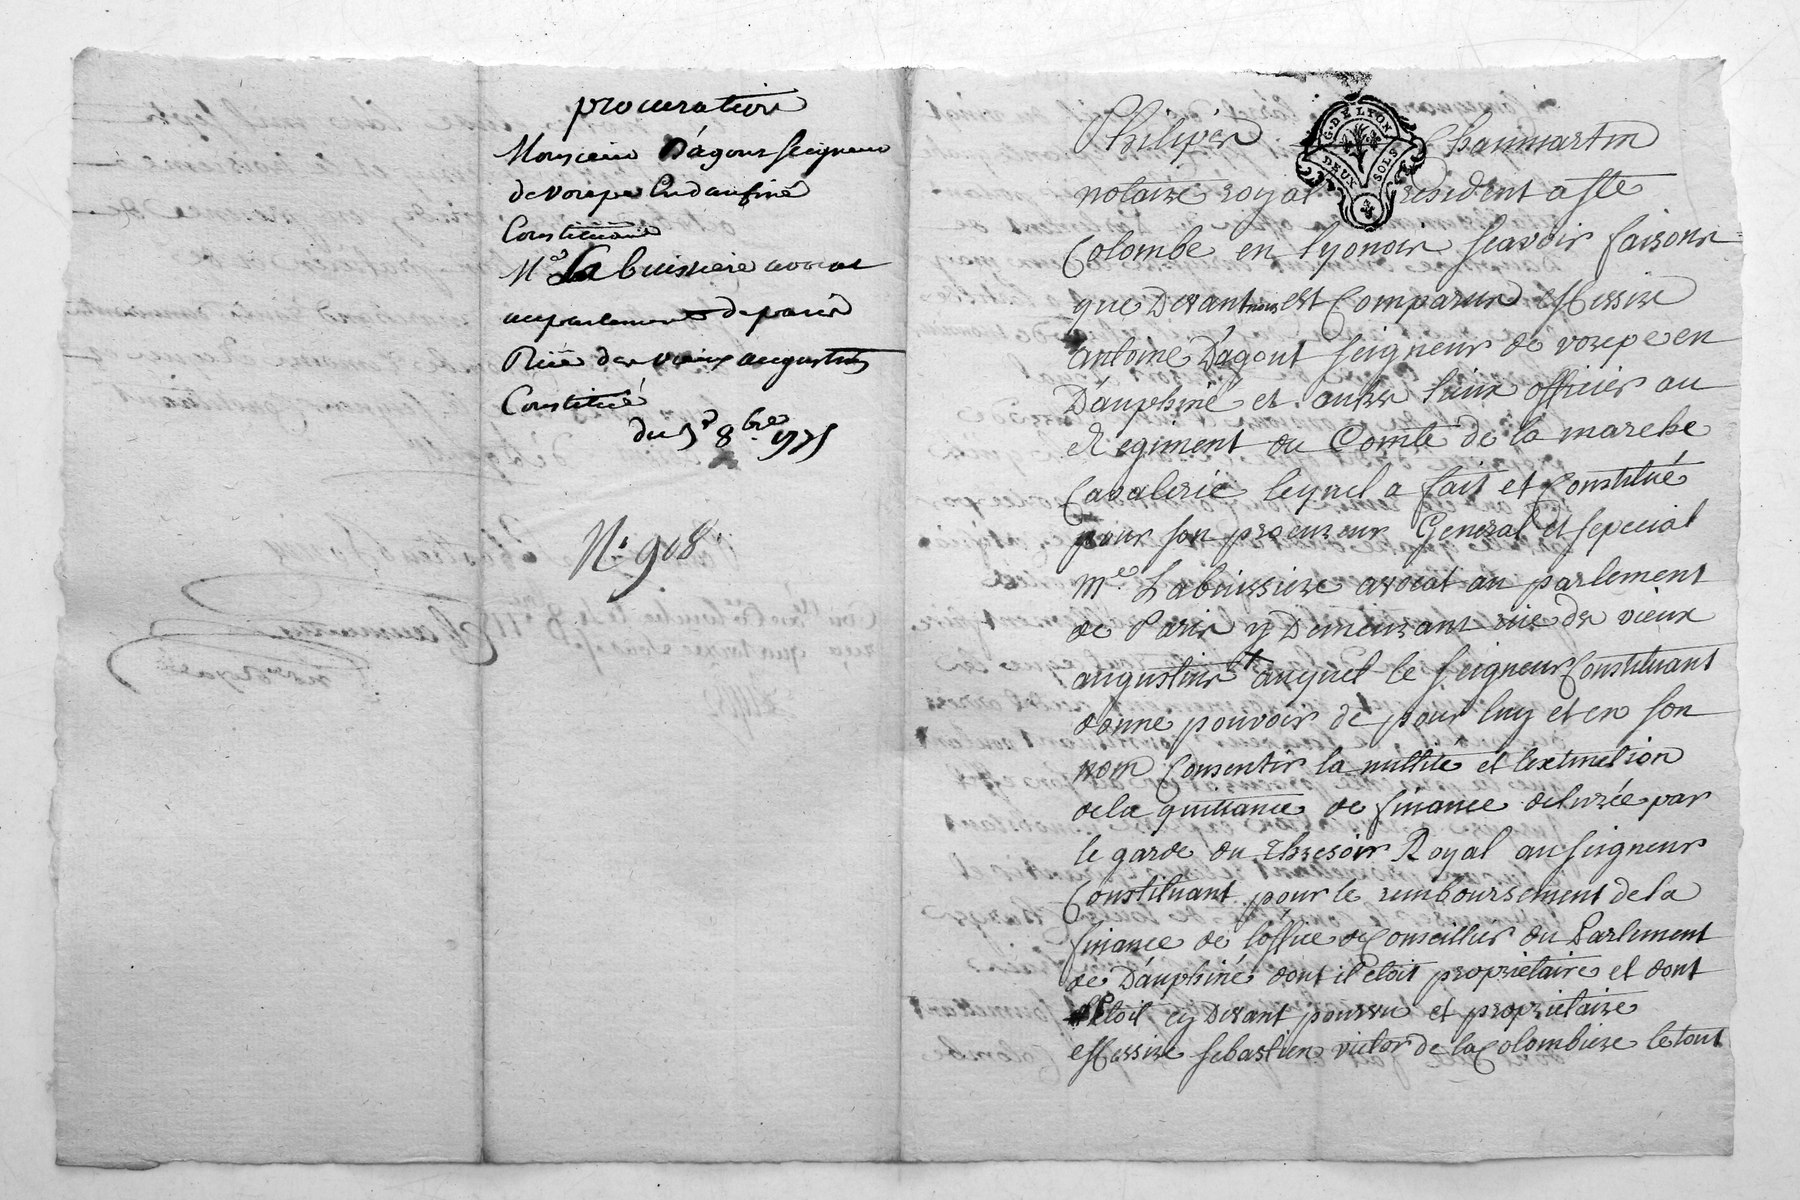 procuration
Monsieur Dágout seigneur
de vorepe En daufiné
Constituant
Me La buissiere avocat
au parlement de paris
Rüe des vieux augustins
Constitué
du 5e 8bre 1775
N. 908
G. DE LYON
DEUX SOLS
Philipes Chaumartin
notaire royal résident a ste
Colombe en lyonois scavoir faisons
que Devant nous est Comparus Messire
antoine Dágout seigneur de vorepe en
Dáuphiné et ancien officier au
Regiment du Comte de la marche
Cavalerie lequel a fait et Constitué
pour son procureur General et sepecial
me. Labuissiere avocat au parlement
de Paris y Demeurant rüe des vieux
augustins auquel le seigneur Constituant
donne pouvoir de pour luy et en son
nom Consentir la nullité et lextinction
de la quittance de finance delivrée par
le garde du thresoir Royal au seigneur
Constituant pour le remboursement de la
finance de loffice de Conseiller du Parlement
de Dáuphiné dont il etoit proprietaire et dont
etoit cy Devant pourvu et proprietaire
Messire sebastien victor de la Colombiere le tout